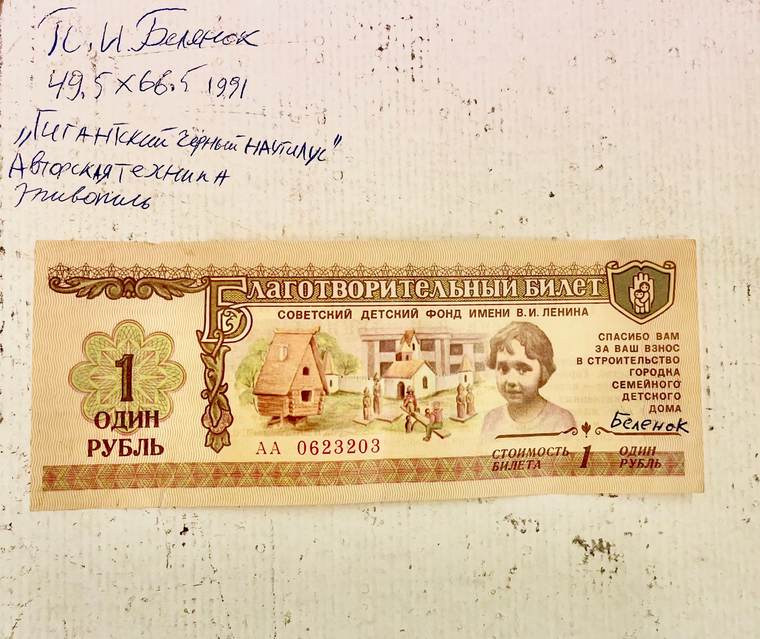 П. И. Беленок
49.5 x 66.5 1991
„Гигантский черный наутилус"
Авторская техника
живопись
Благотворительный билет
СОВЕТСКИЙ ДЕТСКИЙ ФОНД ИМЕНИ В.И. ЛЕНИНА
1
ОДИН
РУБЛЬ
СПАСИБО ВАМ
ЗА ВАШ ВЗНОС
В СТРОИТЕЛЬСТВО
ГОРОДКА
СЕМЕЙНОГО
ДЕТСКОГО
ДОМА
Беленок
АА 0623203
СТОИМОСТЬ БИЛЕТА 1 ОДИН РУБЛЬ